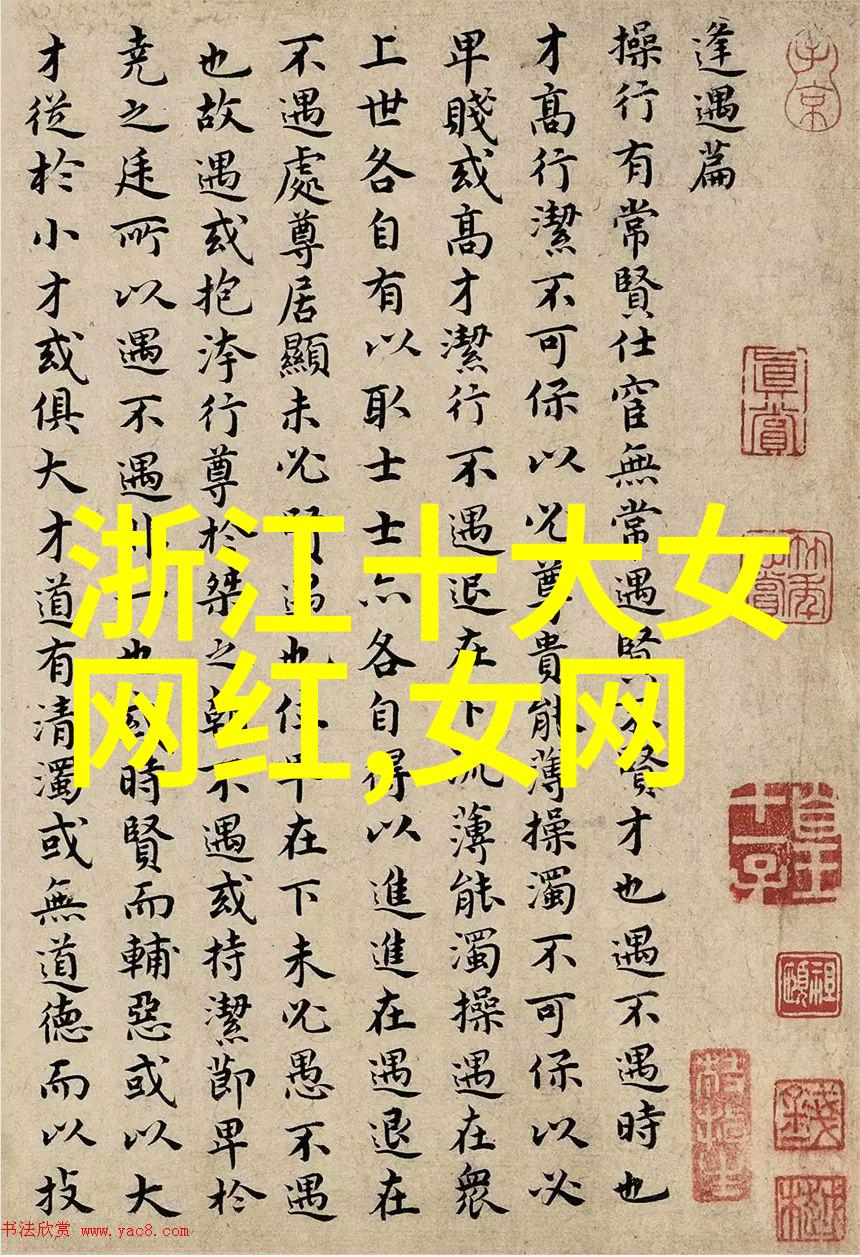 逢遇篇
操行有常賢仕宦無常遇賢不賢才也遇不遇時也
才髙行潔不可保以必尊貴能薄操濁不可保以必
卑賤或髙才潔行不遇退在下流薄能濁操遇在衆
上世各自有以取士士亦各自得以進進在遇退在
不遇處尊居顯未必賢遇也位卑在下未必愚不遇
也故遇或抱洿行尊於桀之朝不遇或持潔節卑於
堯之廷所以遇不遇非一也或時賢而輔惡或以大
才從於小才或俱大才道有清濁或無道德而以技
浙江十大女
网红,女网
書法欣赏 www.yac8.com